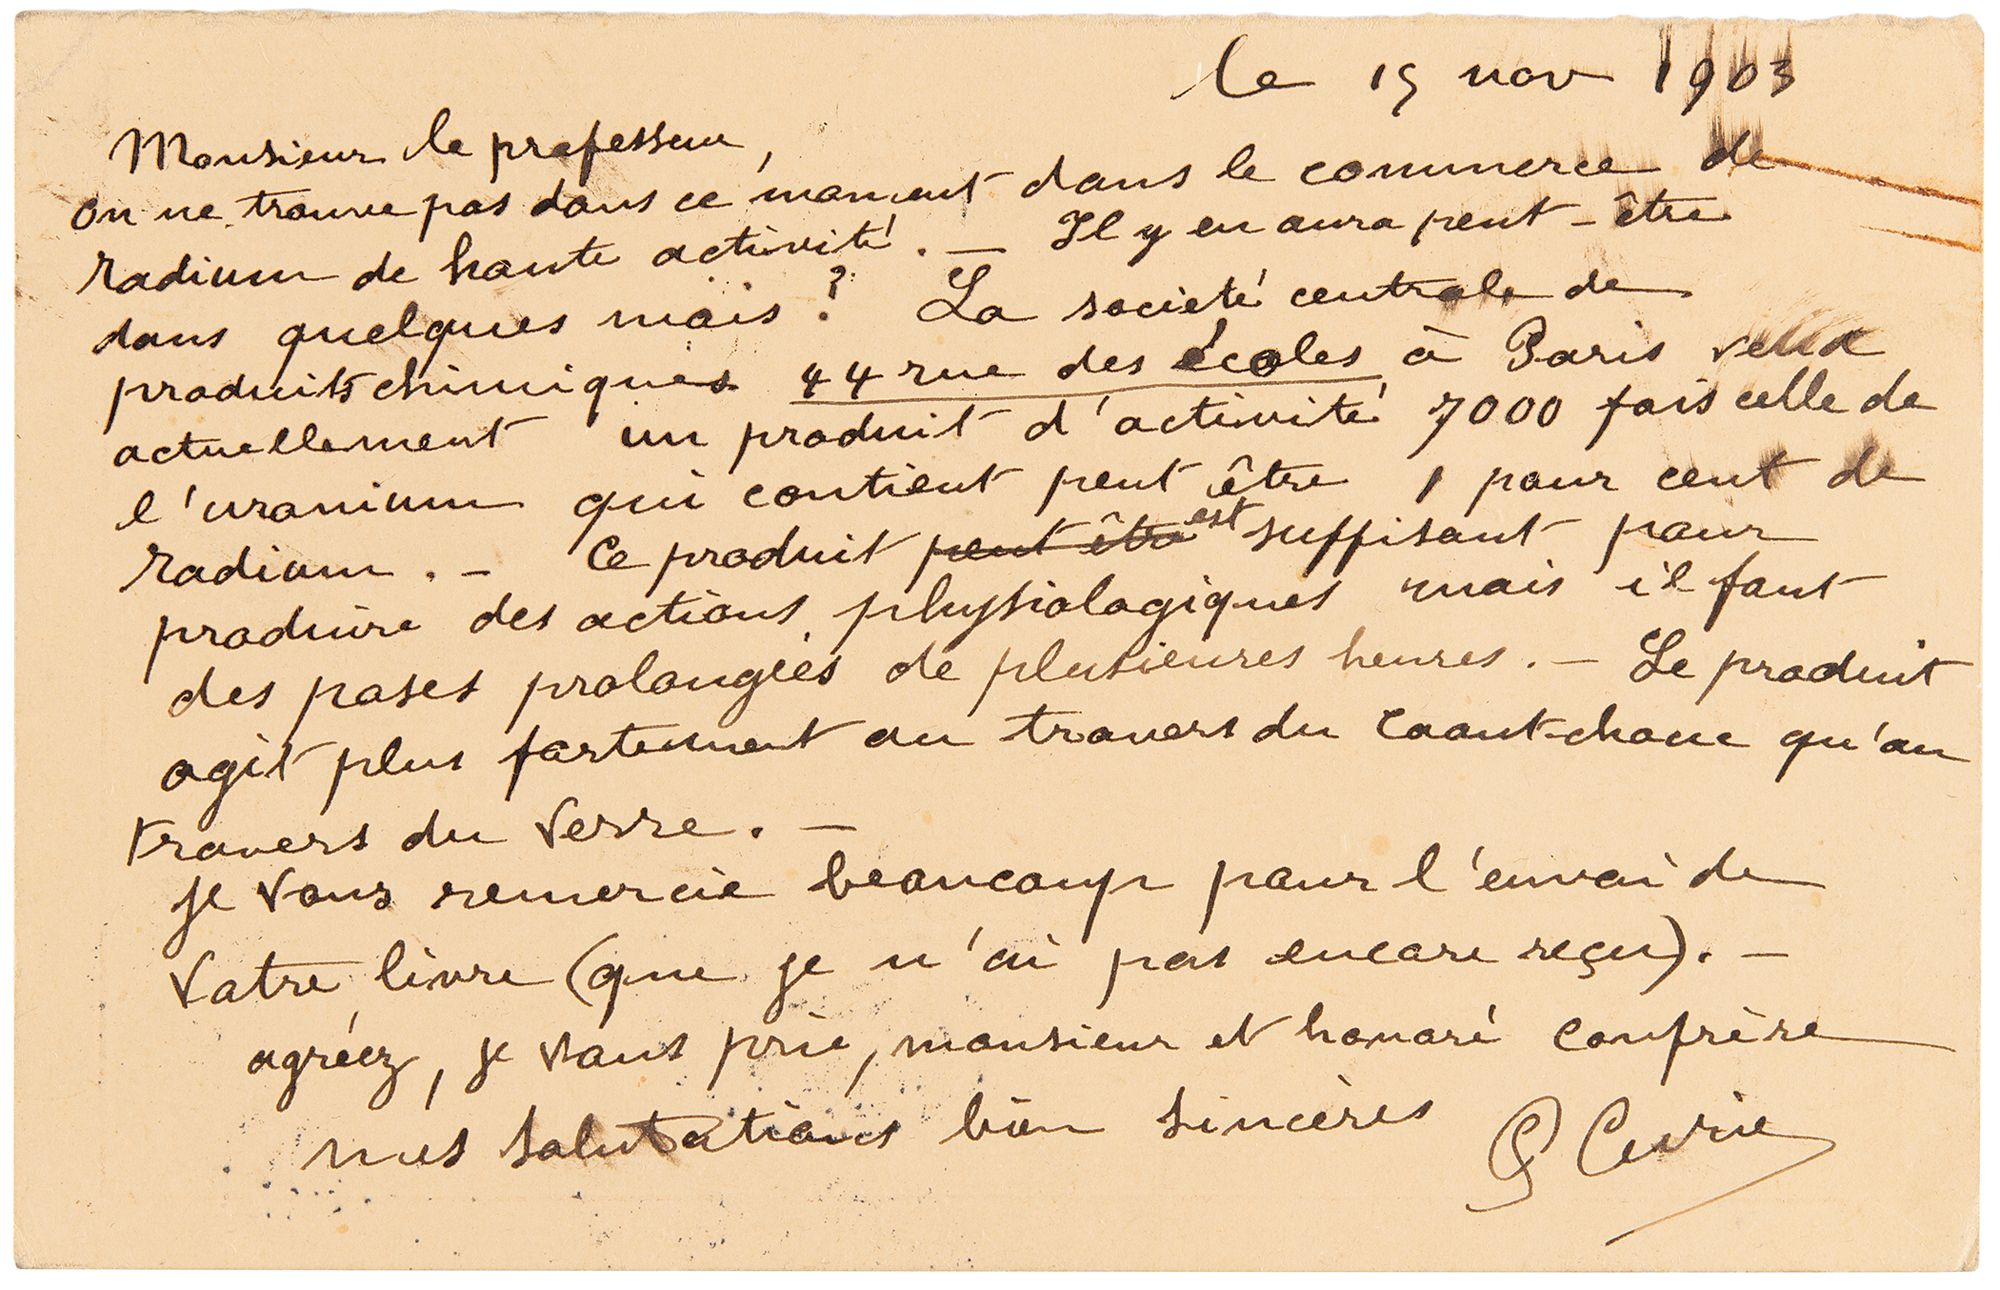 le 15 nov 1903
Monsieur le professeur,
on ne trouve pas dans ce moment dans le commerce de
radium de haute activité. — Il y en aura peut-être
dans quelques mois? La société centrale de
produits chimiques 44 rue des écoles à Paris vend
actuellement un produit d'activité 7000 fois celle de
l'uranium qui contient peut être 1 pour cent de
radium. — Ce produit ~~peut être~~ est suffisant pour
produire des actions physiologiques mais il faut
des poses prolongées de plusieures heures. — Le produit
agit plus fortement au travers du caoutchouc qu'au
travers du verre. —
je vous remercie beaucoup pour l'envoi de
votre livre (que je n'ai pas encore reçu). —
agréez, je vous prie, monsieur et honoré confrère
mes salutations bien sincères P Curie